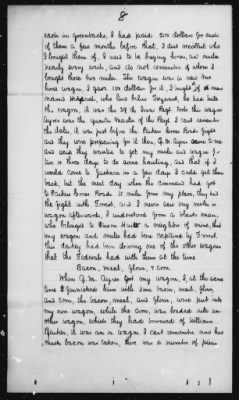 8
each in greenbacks, I had paid 200 dollars for each
of them a few months before that, I dont recollect who
I bought them of, I used to be buying horses and mules
nearly every week, and do not remember of whom I
bought these two mules. The wagon was a new two
horse wagon, I gave 100 dollars for it, I bought of a man
named Hilyard, who lives below Tazewell, he had built
the wagon, it was the 29 of Iowa Regt took the wagon
Ayres was the quarter Master of the Regt. I cant remember
the date, it was just before the Parkers Cross Roads fight
and they were preparing for it then, G. M. Ayres came to me
and said they wanted to get my mules and wagon for
two or three days to do some hauling, and that if I
would come to Jackson in a few days I could get them
back, but the next day when the command had got
to Parkers Cross Roads 10 miles from my place, they had
the fight with Forrest, and I never saw my mules or
wagon afterwards, I understood from a black man,
who belongs to a neighbor of mine, that
my wagon and mules had been captured by Forrest,
this darkey had been driving one of the other wagons
that the Federals had with them at the time
Bacon, meal, flour, & corn
When G. M. Ayres got my wagon, I, at the same
time furnished him with some bacon, meal, flour,
and corn, the bacon, meal, and flour, were put into
my own wagon, while the corn, was loaded into an
other wagon, which they had removed of William
Parker, it was an ox wagon I cant remember now how
much bacon was taken, there was a number of pieces